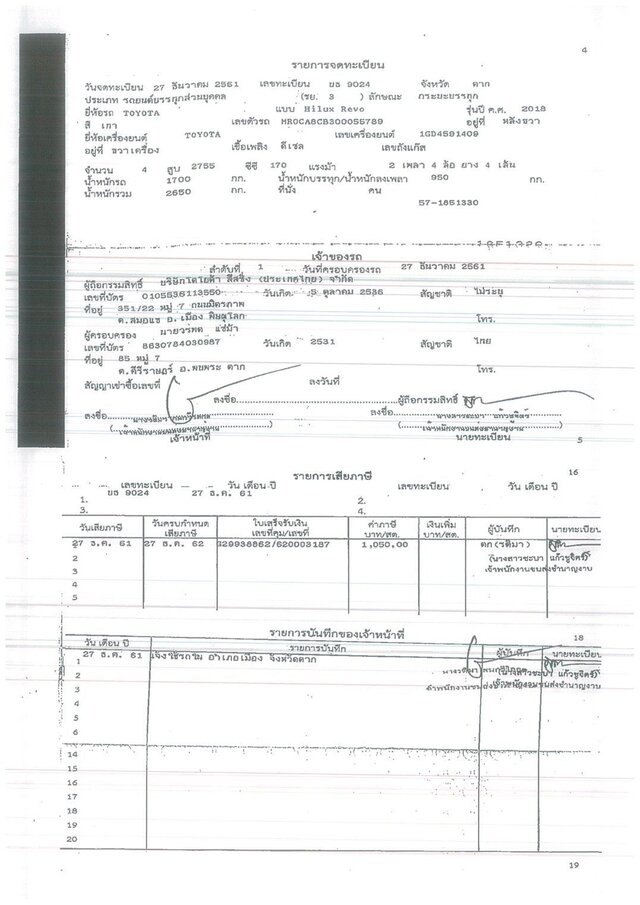 4
รายการจดทะเบียน
วันจดทะเบียน 27 ธันวาคม 2561 เลขทะเบียน ยธ 9024 จังหวัด ตาก
ประเภท รถยนต์บรรทุกส่วนบุคคล (รย. 3 ) ลักษณะ กระบะบรรทุก
ยี่ห้อรถ TOYOTA แบบ Hilux Revo รุ่นปี ค.ศ. 2018
สี เทา เลขตัวรถ MR0CA8CB300055789 อยู่ที่ หลังขวา
ยี่ห้อเครื่องยนต์ TOYOTA เลขเครื่องยนต์ 1GD4591409
อยู่ที่ ขวาเครื่อง เชื้อเพลิง ดีเซล เลขถังแก๊ส
จำนวน 4 สูบ 2755 ซีซี 170 แรงม้า 2 เพลา 4 ล้อ ยาง 4 เส้น
น้ำหนักรถ 1700 กก. น้ำหนักบรรทุก/น้ำหนักลงเพลา 950 กก.
น้ำหนักรวม 2650 กก. ที่นั่ง คน
57-1851330
เจ้าของรถ
ลำดับที่ 1 วันที่ครอบครองรถ 27 ธันวาคม 2561
ผู้ถือกรรมสิทธิ์ บริษัทโตโยต้า ลีสซิ่ง (ประเทศไทย) จำกัด
เลขที่บัตร 0105536113550 วันเกิด 5 ตุลาคม 2536 สัญชาติ ไม่ระบุ
ที่อยู่ 351/22 หมู่ 7 ถนนมิตรภาพ
ต.สมอแข อ.เมือง พิษณุโลก โทร.
ผู้ครอบครอง นายวรกต แซ่ม้า
เลขที่บัตร 8630784030987 วันเกิด 2531 สัญชาติ ไทย
ที่อยู่ 85 หมู่ 7
ต.คีรีราษฎร์ อ.พบพระ ตาก โทร.
สัญญาเช่าซื้อเลขที่ ลงวันที่
ลงชื่อ ผู้ถือกรรมสิทธิ์
ลงชื่อ ลงชื่อ
เจ้าหน้าที่ นายทะเบียน
5
รายการเสียภาษี 16
เลขทะเบียน วัน เดือน ปี เลขทะเบียน วัน เดือน ปี
1. ยธ 9024 27 ธ.ค. 61 2.
3. 4.
วันเสียภาษี วันครบกำหนดเสียภาษี ใบเสร็จรับเงิน เลขที่คุม/เลขที่ ค่าภาษี บาท/สต. เงินเพิ่ม บาท/สต. ผู้บันทึก นายทะเบียน
27 ธ.ค. 61 27 ธ.ค. 62 I29938862/620003187 1,050.00 ตก(รติมา)
2 (นางสาวชะบา แก้วชูจิตร์)
3 เจ้าพนักงานขนส่งชำนาญงาน
4
5
รายการบันทึกของเจ้าหน้าที่ 18
วัน เดือน ปี รายการบันทึก ผู้บันทึก นายทะเบียน
1 27 ธ.ค. 61 แจ้งใช้รถใน อำเภอเมือง จังหวัดตาก
2 (นางสาวชะบา แก้วชูจิตร์)
3 เจ้าพนักงานขนส่งชำนาญงาน
4
5
6
14
15
16
17
18
19
20
19